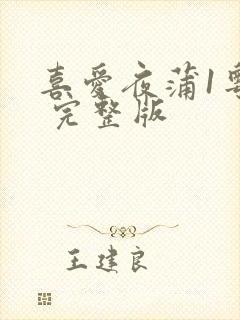 喜愛夜蒲1粵
完整版
王建良